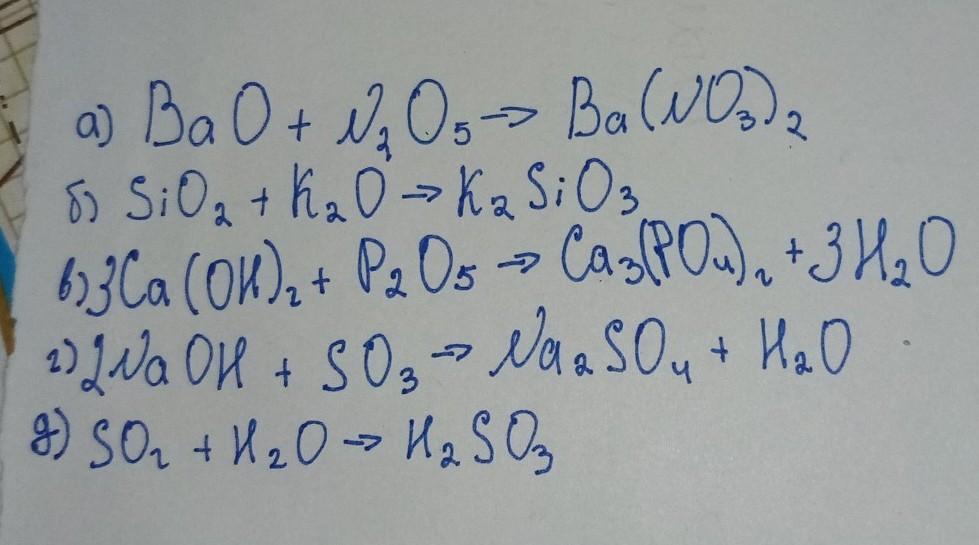 а) BaO + N₂O₅ → Ba(NO₃)₂
б) SiO₂ + K₂O → K₂SiO₃
в) 3Ca(OH)₂ + P₂O₅ → Ca₃(PO₄)₂ + 3H₂O
г) 2NaOH + SO₃ → Na₂SO₄ + H₂O
д) SO₂ + H₂O → H₂SO₃